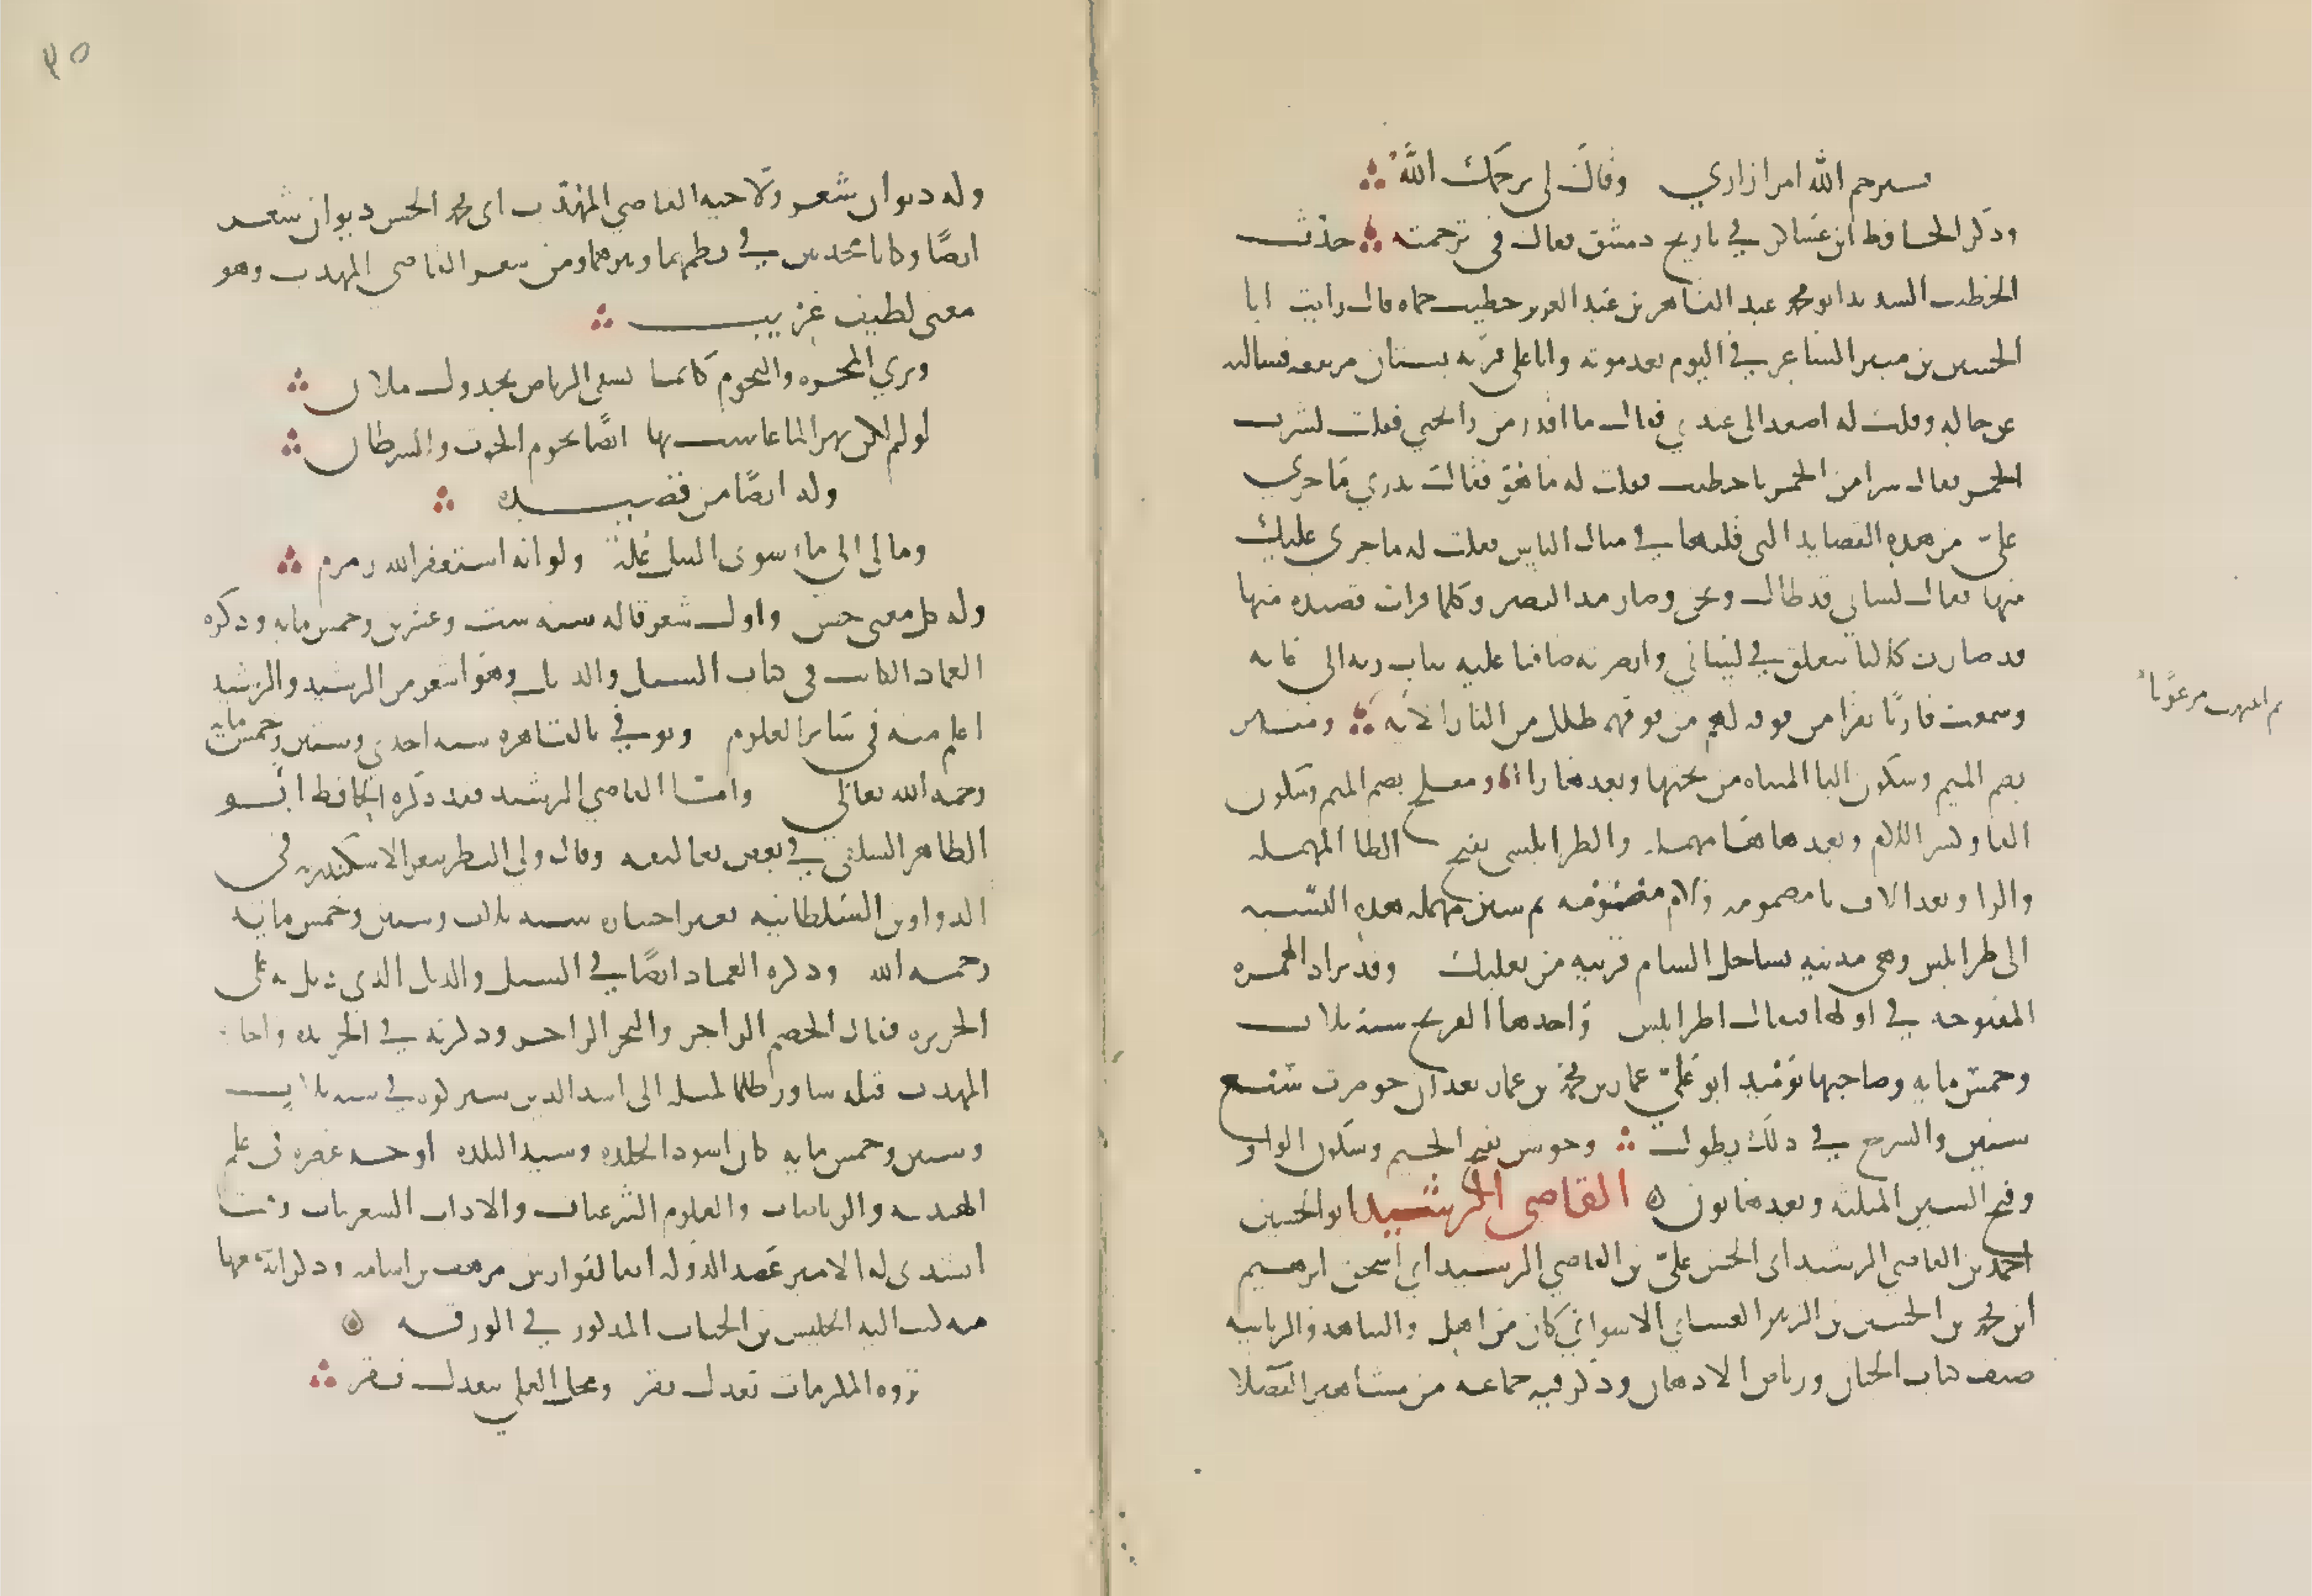 فيرحم الله امرا زارني وقال لي يرحمك الله
وذكر الحافظ ابن عساكر في تاريخ دمشق فقال في ترجمته حدث
الخطيب السديد ابو محمد عبد القاهر بن عبد العزيز خطيب حماه قال رايت ابا
الحسين بن منير الشاعر في النوم بعد موته وانا على قرنة بستان مرتفعه فسالته
عن حاله وقلت له اصعد الى عندي فقال ما اقدر من رائحتي فقلت تشرب
الخمر فقال شرا من الخمر يا خطيب فقلت له ما هو فقال تدري ما جرى
علي من هذه القصايد التي قلتها في مثالب الناس فقلت له ما جرى عليك
منها فقال لساني قد طال وثخن وصار مد البصر وكلما قرات قصيده منها
قد صارت كلابا تتعلق في لساني وابصرته حافيا عليه ثياب رثه الى غايه
وسمعت قاريا يقرا من فوقه لهم من فوقهم ظلل من النار الايه ومنير
ثم انتبهت مرعوبا
بضم الميم وسكون اليا المثناه من تحتها وبعدها را ومفلح بضم الميم وسكون
الفا وكسر اللام وبعدها حا مهمله والطرابلسي بفتح الطا المهمله
والرا وبعد الالف با مضمومه ولام مضمومه ثم سين مهمله هذه النسبه
الى طرابلس وهي مدينه بساحل الشام قريبه من بعلبك وقد تزاد الهمزه
المفتوحه في اولها فيقال اطرابلس واخذها الفرنج سنة ثلاث
وخمس مايه وصاحبها يومئذ ابو علي عمار بن محمد بن عمار بعد ان حوصرت سبع
سنين والشرح في ذلك يطول وجوشن بفتح الجيم وسكون الواو
وفتح الشين المثلثه وبعدها نون القاضي الرشيد ابو الحسين
احمد بن القاضي الرشيد ابي الحسن علي بن القاضي الرشيد ابي اسحق ابرهيم
ابن محمد بن الحسين بن الزبير الغساني الاسواني كان من اهل والنباهه والرياسه
صنف كتاب الجنان ورياض الاذهان وذكر فيه جماعه من مشاهير الفضلا
٣٥
وله ديوان شعر ولاخيه القاضي المهذب ابي محمد الحسن ديوان شعر
ايضا وكانا مجيدين في نظمهما ونثرهما ومن شعر القاضي المهذب وهو
معنى لطيف غريب
وترى المجره والنجوم كانما تسقي الرياض بجدول ملان
لو لم تكن نهرا لما عاست بها ايضا نجوم الحوت والسرطان
وله ايضا من قصيده
وما لي الى ماء سوى النيل غلة ولو انه استغفر الله زمزم
وله كل معنى حسن واول شعر قاله سنه ست وعشرين وخمس مايه وذكره
العماد الكاتب في كتاب السيل والذيل وهو اشعر من الرشيد والرشيد
اعلم منه في ساير العلوم وتوفي بالقاهره سنه احدى وستين وخمس مايه
رحمه الله تعالى واما القاضي الرشيد فقد ذكره الحافظ ابو
الطاهر السلفي في بعض تعاليقه وقال ولي النظر بثغر الاسكندريه في
الدواوين السلطانيه بغير اختياره سنه ثلاث وستين وخمس مايه
رحمه الله وذكره العماد ايضا في السيل والذيل الذي ذيل به على
الخريده فقال الخضم الزاخر والبحر الزاخر وذكرته في الخريده واخاه
المهذب قتله شاور ظلما لميله الى اسد الدين شيركوه في سنه ثلاث
وستين وخمس مايه كان اسود الجلده وسيد البلده اوحد عصره في علم
الهندسه والرياضات والعلوم الشرعيات والاداب الشعريات ومما
انشدني له الامير عضد الدوله ابو الفوارس مرهف بن اسامه وذكر انه سمعها
منه كتب اليه الجليس بن الحباب المذكور في الورقه
ثروه المكرمات بعدك فقر ومحل العلى ببعدك قفر